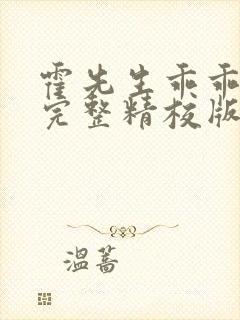 霍先生乖乖
完整精校版
温蔷